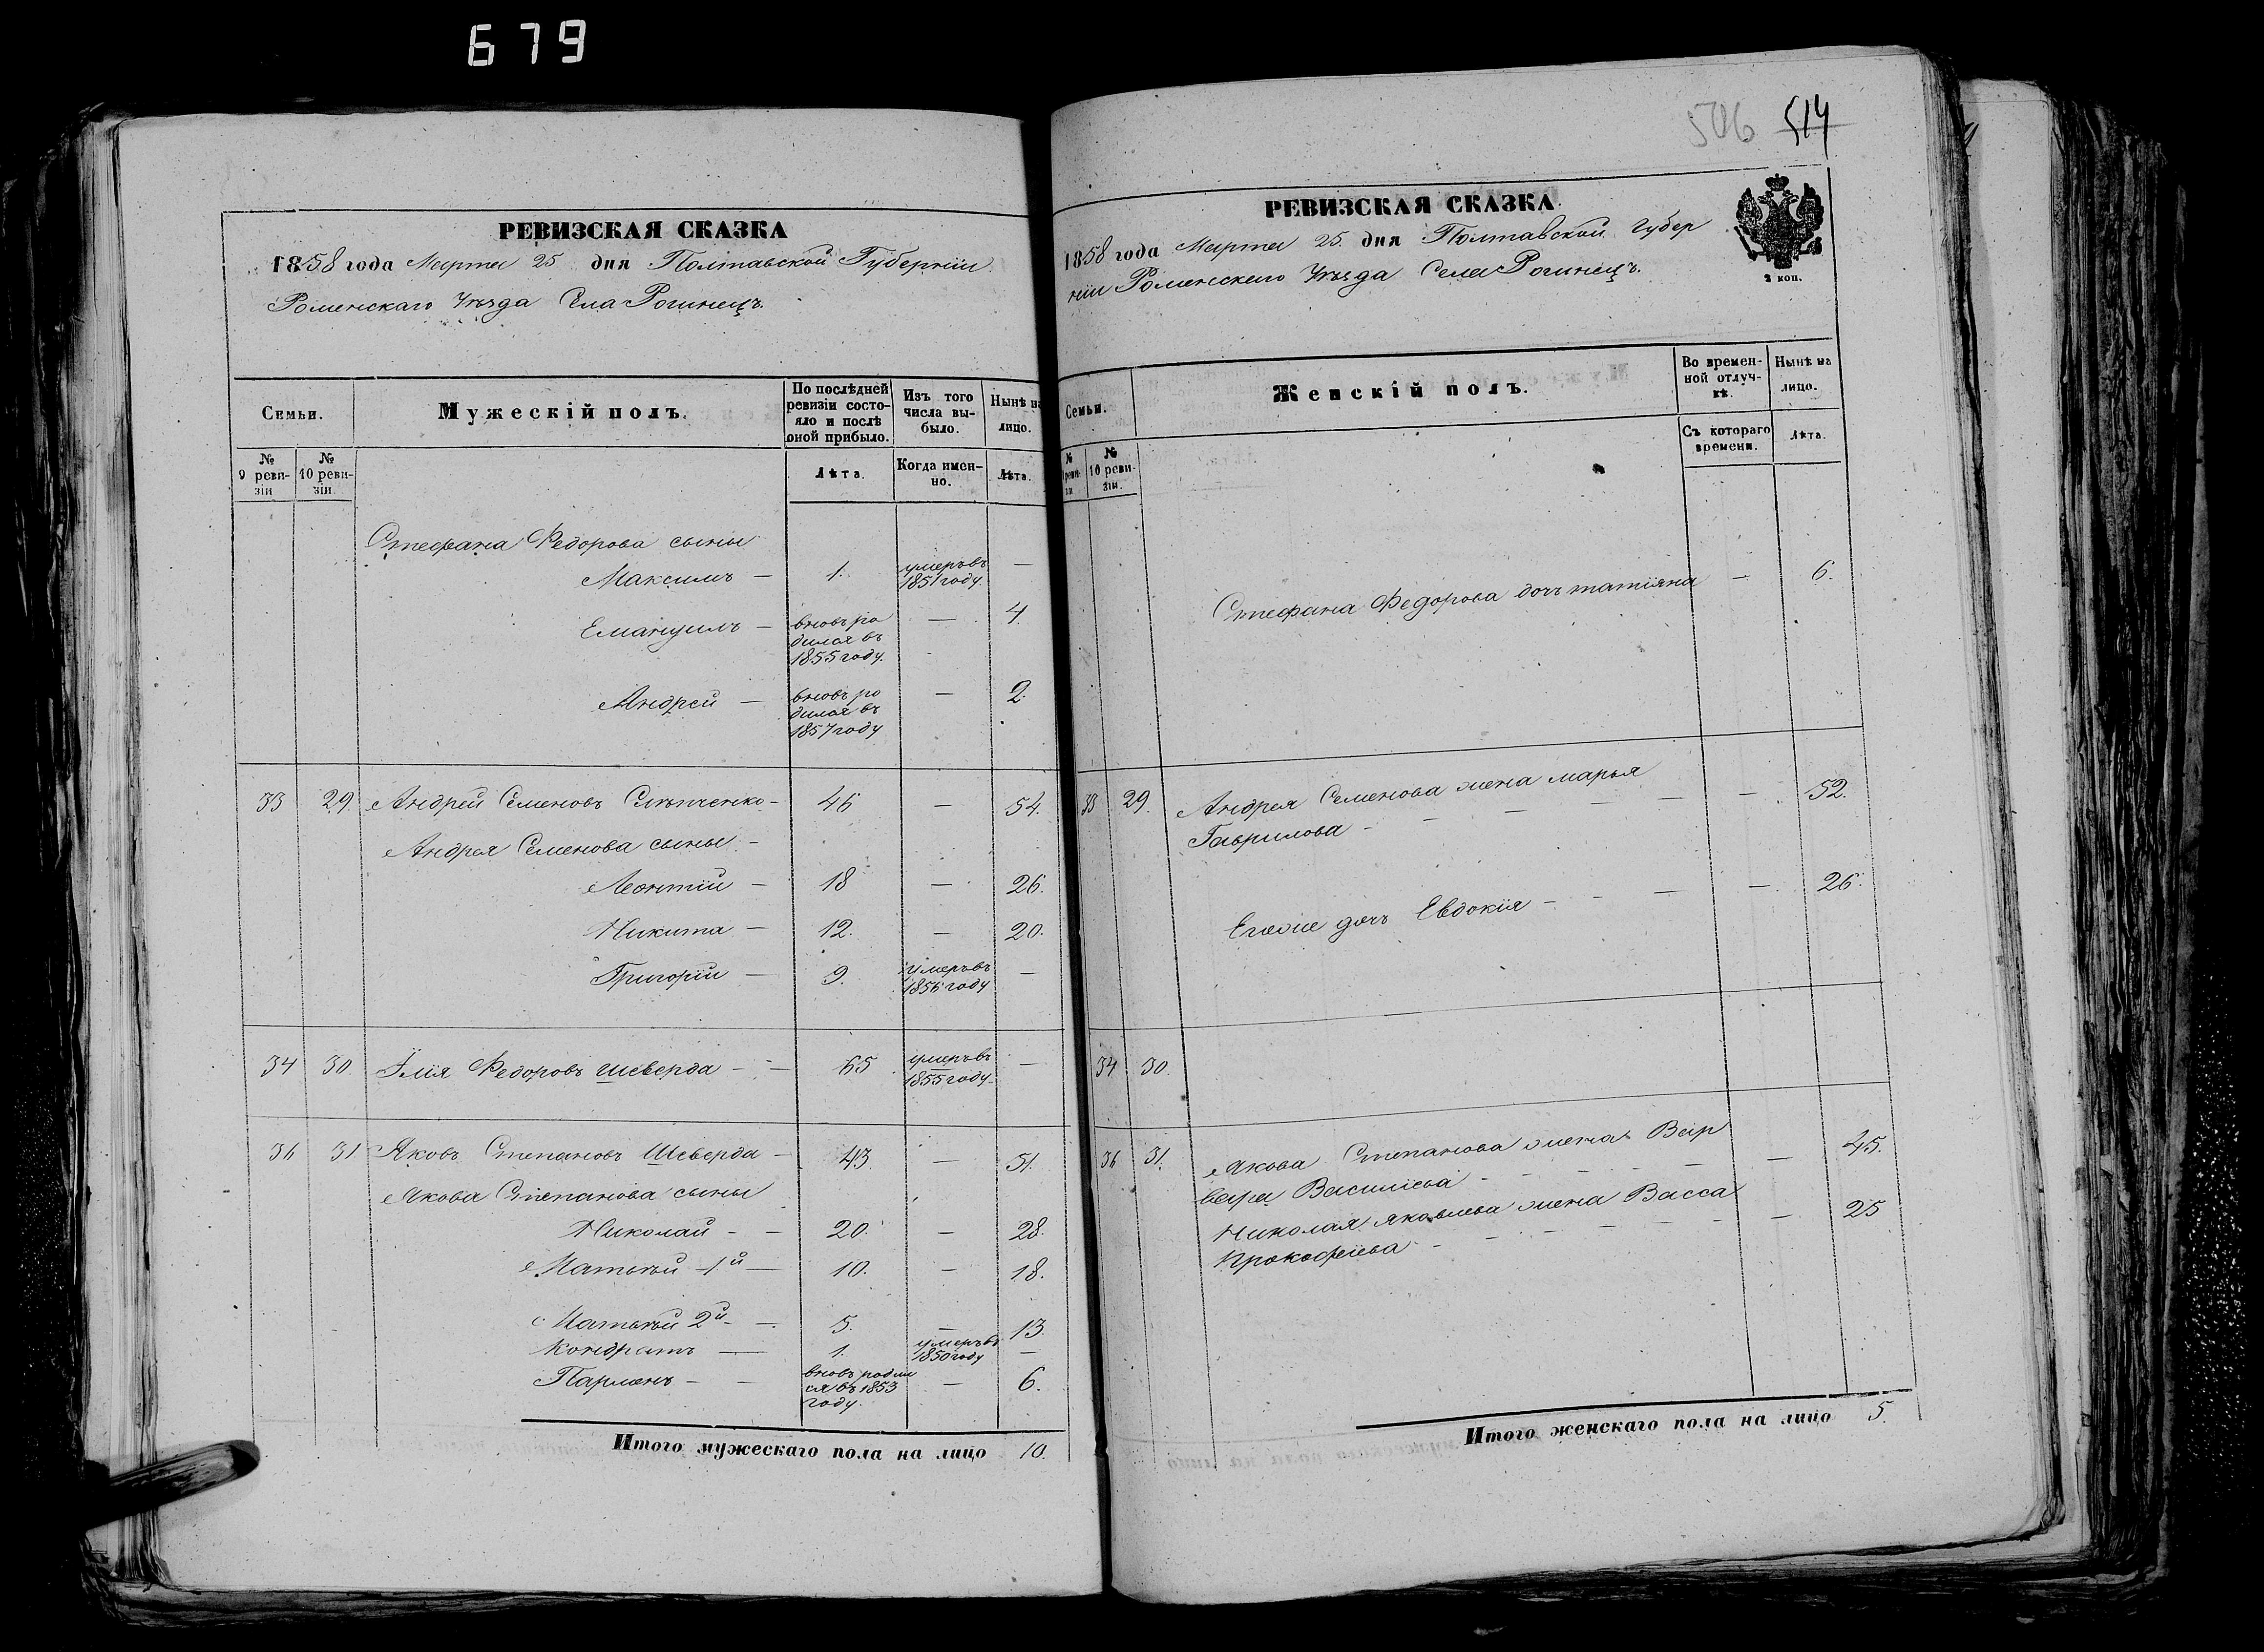 679
506 514
РЕВИЗСКАЯ СКАЗКА
1858 года Марта 25 дня Полтавской Губерніи
Роменскаго Уѣзда Села Рогинецъ.
Семьи.
Мужескій полъ.
По послѣдней ревизіи состояло и послѣ оной прибыло.
Изъ того числа выбыло.
Нынѣ на лицо.
№ 9 ревизіи
№ 10 ревизіи.
Лѣта.
Когда именно.
Лѣта.
Стефана Федорова сыны
Максимъ — 1. умеръ въ 1851 году —
Емануилъ — вновь родился въ 1855 году. — 4
Андрей — вновь родился въ 1857 году — 2.
33 29 Андрей Семеновъ — 46 — 54.
Андрея Семенова сыны —
Леонтій — 18 — 26.
Никита — 12. — 20.
Григорій — 9. умеръ въ 1856 году —
34 30. Илія Федоровъ Шеверда — — 65 умеръ въ 1855 году —
36 31 Яковъ Степановъ Шеверда — 43 — 51.
Якова Степанова сыны
Николай — — 20. — 28.
Матвѣй 1й — 10. — 18.
Матвѣй 2й — — 5. — 13.
Кондратъ — 1. умеръ въ 1850 году —
Парменъ — — вновь родился въ 1853 году. — 6.
Итого мужескаго пола на лицо 10.
РЕВИЗСКАЯ СКАЗКА.
1858 года Марта 25 дня Полтавской Губер
ніи Роменскаго Уѣзда Села Рогинецъ.
2 коп.
Семьи.
Женскій полъ.
Во временной отлучкѣ.
Нынѣ на лицо.
№ ревизіи
№ 10 ревизіи.
Съ котораго времени.
Лѣта.
Стефана Федорова дочь татіяна — 6.
33 29. Андрея Семенова жена марья
Гаврилова — — — — — 52.
Егоже дочь Евдокія — — — — 26.
34 30.
36 31. Якова Степанова жена Вар
вара Василіева — — — — 45.
Николая Яковлева жена Васса
Прокофіева — — — — 25
Итого женскаго пола на лицо 5.